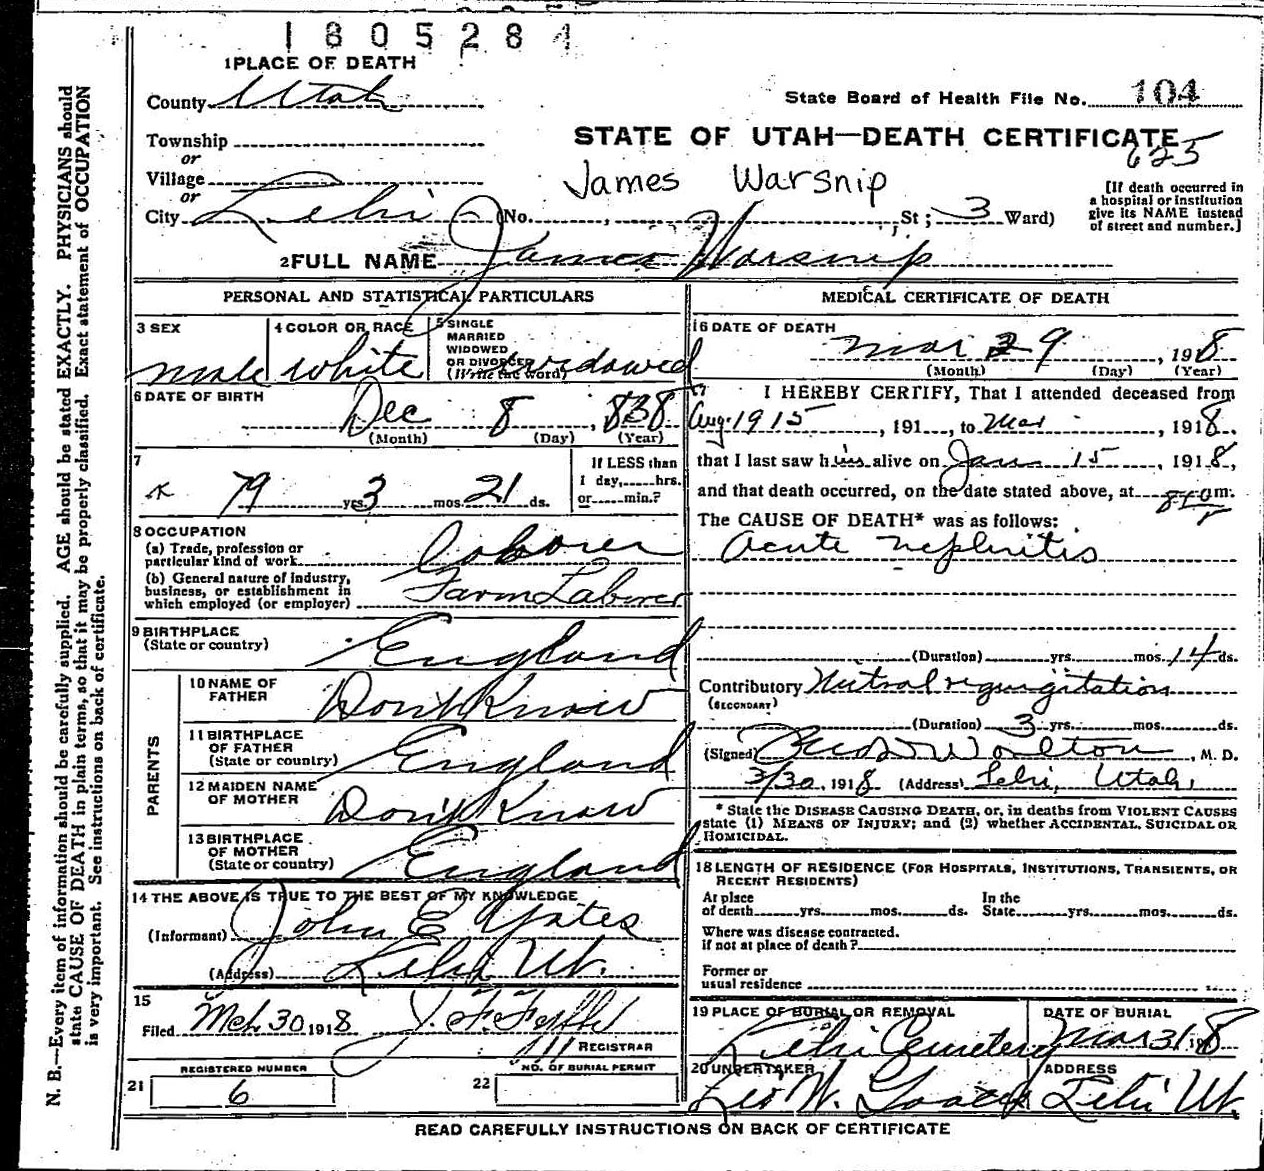 1805284
1 PLACE OF DEATH
County Utah
State Board of Health File No. 104
Township
or
STATE OF UTAH—DEATH CERTIFICATE
625
Village
or
James Warsnip
City Lehi (No. , St ; 3 Ward)
[If death occurred in
a hospital or institution
give its NAME instead
of street and number.]
2 FULL NAME James Warsnip
PERSONAL AND STATISTICAL PARTICULARS
3 SEX
male
4 COLOR OR RACE
white
5 SINGLE
MARRIED
WIDOWED
OR DIVORCED
(Write the word) widowed
6 DATE OF BIRTH
Dec 8, 1838
(Month) (Day) (Year)
7
79 yrs 3 mos. 21 ds.
If LESS than
1 day, hrs.
or min.?
8 OCCUPATION
(a) Trade, profession or
particular kind of work Laborer
(b) General nature of industry,
business, or establishment in
which employed (or employer) Farm Laborer
9 BIRTHPLACE
(State or country) England
PARENTS
10 NAME OF
FATHER Don't Know
11 BIRTHPLACE
OF FATHER
(State or country) England
12 MAIDEN NAME
OF MOTHER Don't Know
13 BIRTHPLACE
OF MOTHER
(State or country) England
14 THE ABOVE IS TRUE TO THE BEST OF MY KNOWLEDGE
(Informant) John E Yates
(Address) Lehi Ut.
15
Filed Mch 30 1918 J. F.
REGISTRAR
REGISTERED NUMBER
21 6
NO. OF BURIAL PERMIT
22
MEDICAL CERTIFICATE OF DEATH
16 DATE OF DEATH
Mar 29, 1918
(Month) (Day) (Year)
17 I HEREBY CERTIFY, That I attended deceased from
Aug. 1915, 191 , to Mar , 1918,
that I last saw him alive on Jan 15, 1918,
and that death occurred, on the date stated above, at m.
The CAUSE OF DEATH* was as follows:
Acute nephritis
(Duration) yrs. mos. 14 ds.
Contributory Mitral regurgitation
(SECONDARY)
(Duration) 3 yrs. mos. ds.
(Signed) Worlton, M. D.
3/30, 1918 (Address) Lehi, Utah,
* State the DISEASE CAUSING DEATH, or, in deaths from VIOLENT CAUSES
state (1) MEANS OF INJURY; and (2) whether ACCIDENTAL, SUICIDAL OR
HOMICIDAL.
18 LENGTH OF RESIDENCE (FOR HOSPITALS, INSTITUTIONS, TRANSIENTS, OR
RECENT RESIDENTS)
At place
of death yrs. mos. ds.
In the
State yrs. mos. ds.
Where was disease contracted.
if not at place of death?
Former or
usual residence
19 PLACE OF BURIAL OR REMOVAL
Lehi Cemetery
DATE OF BURIAL
Mar 31 1918
20 UNDERTAKER
Leo W. Goates
ADDRESS
Lehi Ut.
READ CAREFULLY INSTRUCTIONS ON BACK OF CERTIFICATE
N. B.—Every item of information should be carefully supplied. AGE should be stated EXACTLY. PHYSICIANS should
state CAUSE OF DEATH in plain terms, so that it may be properly classified. Exact statement of OCCUPATION
is very important. See instructions on back of certificate.